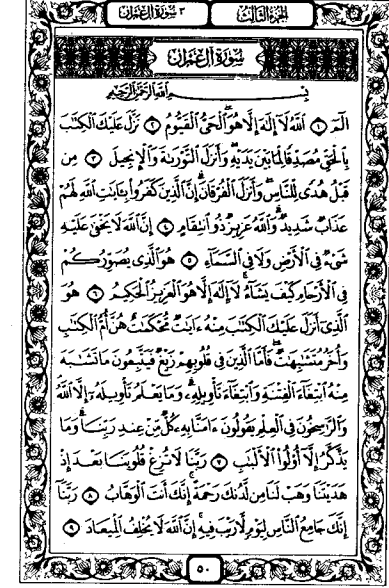 الجزء الثالث
٣ سورة آل عمران
سورة آل عمران
بسم الله الرحمن الرحيم
الٓمٓ ١ ٱللَّهُ لَآ إِلَٰهَ إِلَّا هُوَ ٱلْحَىُّ ٱلْقَيُّومُ ٢ نَزَّلَ عَلَيْكَ ٱلْكِتَٰبَ
بِٱلْحَقِّ مُصَدِّقًا لِّمَا بَيْنَ يَدَيْهِ وَأَنزَلَ ٱلتَّوْرَىٰةَ وَٱلْإِنجِيلَ ٣ مِن
قَبْلُ هُدًى لِّلنَّاسِ وَأَنزَلَ ٱلْفُرْقَانَ إِنَّ ٱلَّذِينَ كَفَرُوا۟ بِـَٔايَٰتِ ٱللَّهِ لَهُمْ
عَذَابٌ شَدِيدٌ وَٱللَّهُ عَزِيزٌ ذُو ٱنتِقَامٍ ٤ إِنَّ ٱللَّهَ لَا يَخْفَىٰ عَلَيْهِ
شَىْءٌ فِى ٱلْأَرْضِ وَلَا فِى ٱلسَّمَآءِ ٥ هُوَ ٱلَّذِى يُصَوِّرُكُمْ
فِى ٱلْأَرْحَامِ كَيْفَ يَشَآءُ لَآ إِلَٰهَ إِلَّا هُوَ ٱلْعَزِيزُ ٱلْحَكِيمُ ٦ هُوَ
ٱلَّذِىٓ أَنزَلَ عَلَيْكَ ٱلْكِتَٰبَ مِنْهُ ءَايَٰتٌ مُّحْكَمَٰتٌ هُنَّ أُمُّ ٱلْكِتَٰبِ
وَأُخَرُ مُتَشَٰبِهَٰتٌ فَأَمَّا ٱلَّذِينَ فِى قُلُوبِهِمْ زَيْغٌ فَيَتَّبِعُونَ مَا تَشَٰبَهَ
مِنْهُ ٱبْتِغَآءَ ٱلْفِتْنَةِ وَٱبْتِغَآءَ تَأْوِيلِهِۦ وَمَا يَعْلَمُ تَأْوِيلَهُۥٓ إِلَّا ٱللَّهُ
وَٱلرَّٰسِخُونَ فِى ٱلْعِلْمِ يَقُولُونَ ءَامَنَّا بِهِۦ كُلٌّ مِّنْ عِندِ رَبِّنَا وَمَا
يَذَّكَّرُ إِلَّآ أُو۟لُوا۟ ٱلْأَلْبَٰبِ ٧ رَبَّنَا لَا تُزِغْ قُلُوبَنَا بَعْدَ إِذْ
هَدَيْتَنَا وَهَبْ لَنَا مِن لَّدُنكَ رَحْمَةً إِنَّكَ أَنتَ ٱلْوَهَّابُ ٨ رَبَّنَآ
إِنَّكَ جَامِعُ ٱلنَّاسِ لِيَوْمٍ لَّا رَيْبَ فِيهِ إِنَّ ٱللَّهَ لَا يُخْلِفُ ٱلْمِيعَادَ ٩
٥٠